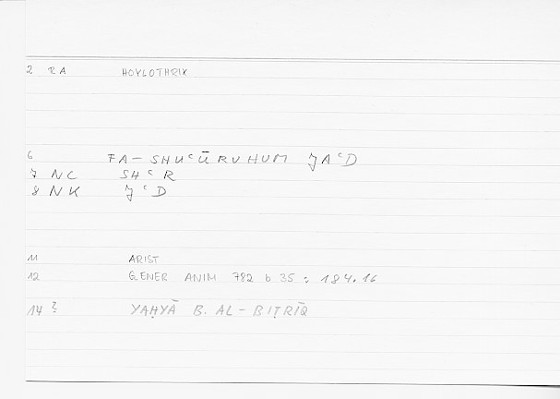 2 RA HOYLOTHRIX
6 FA-SHUᶜŪRUHUM JAᶜD
7 NC SHᶜR
8 NK JᶜD
11 ARIST
12 GENER ANIM 782 b 35 : 184.16
14 ? YAḤYĀ B. AL-BIṬRĪQ